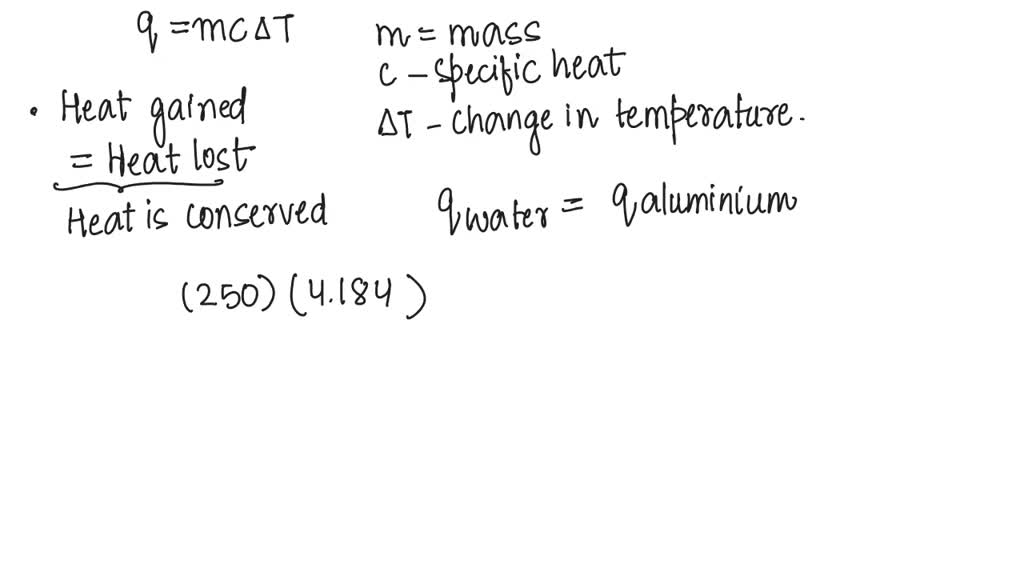 q = mcΔT
m = mass
c - specific heat
ΔT - change in temperature.
• Heat gained
= Heat lost
Heat is conserved
qwater = qaluminium
(250)(4.184)